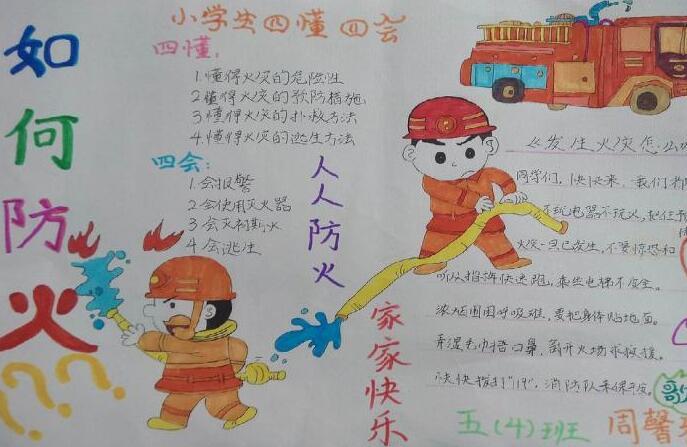 如何防火???
小学生四懂四会
四懂:
1.懂得火灾的危险性
2.懂得火灾的预防措施
3.懂得火灾的扑救方法
4.懂得火灾的逃生方法
四会:
1.会报警
2.会使用灭火器
3.会灭初期火
4.会逃生
人人防火
家家快乐
《发生火灾怎么
同学们,快快来,我们
玩电器不玩火,
火灾一旦已发生,不要惊恐和
可以指挥快速跑,乘坐电梯不安全。
浓烟围困呼吸难,要把身体贴地面。
弄湿毛巾捂口鼻,离开火场求救援。
快快拨打"119",消防队来保平安。
歌
五(4)班 周馨